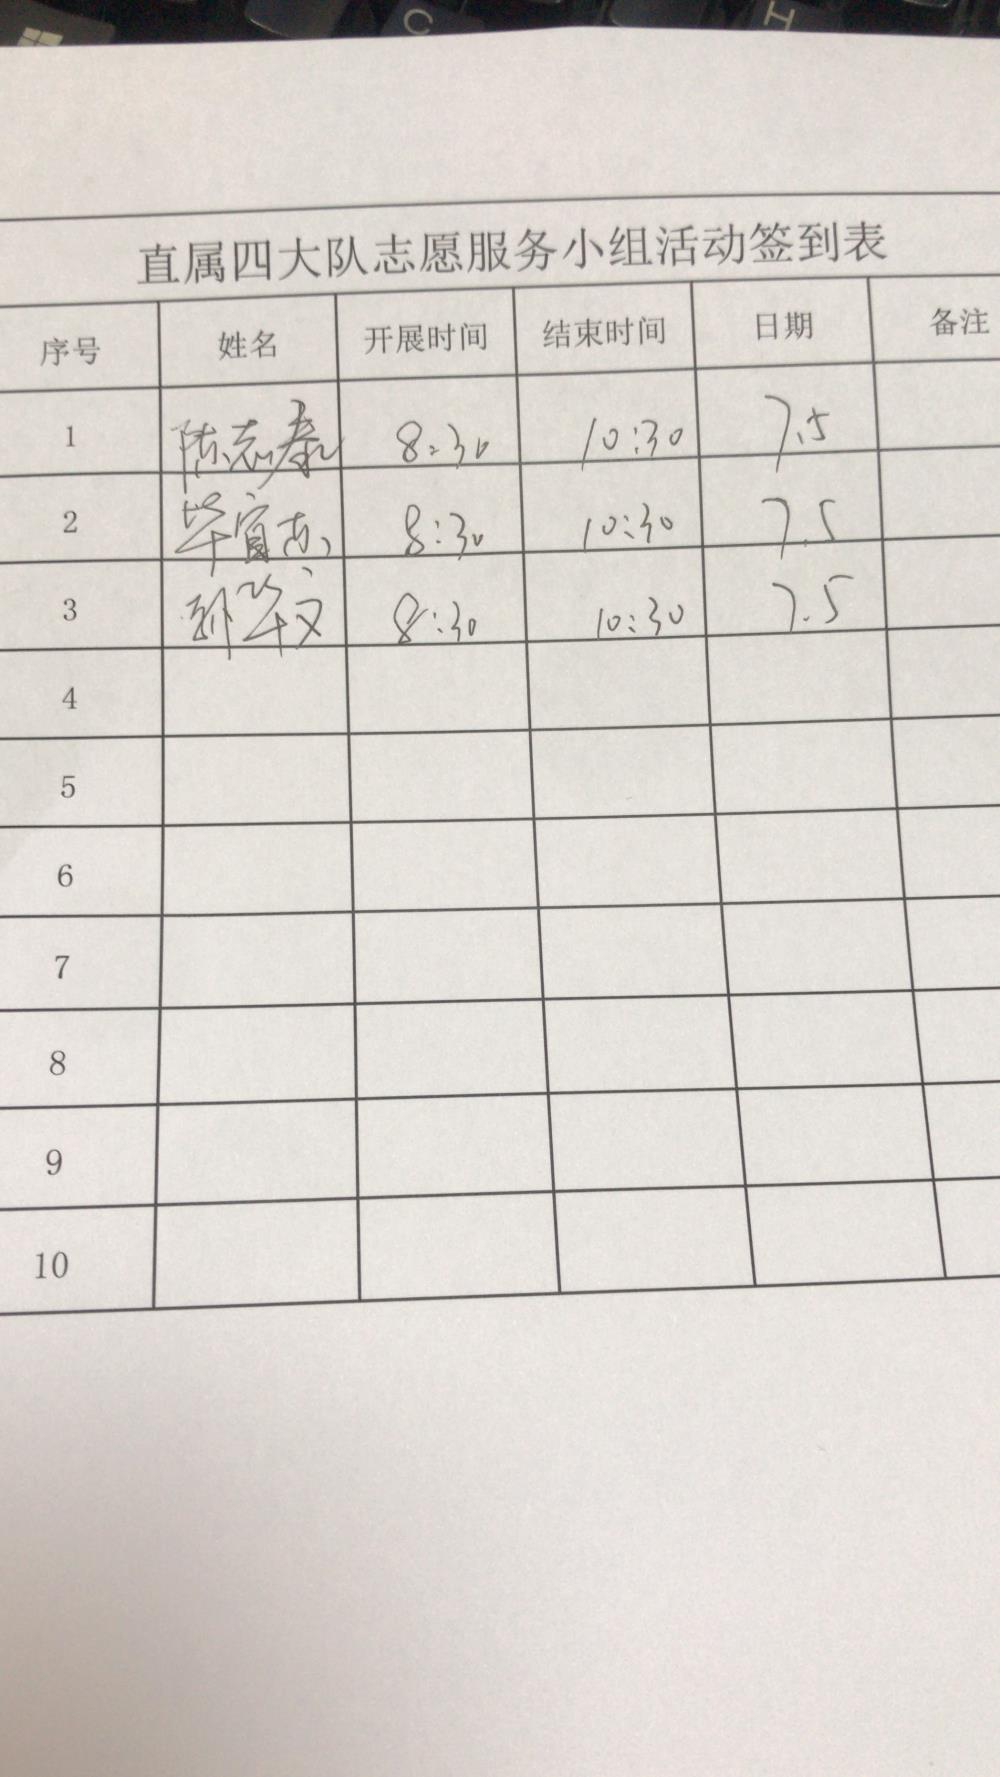 C H
直属四大队志愿服务小组活动签到表
序号 姓名 开展时间 结束时间 日期 备注
1 陈志泰 8:30 10:30 7.5
2 8:30 10:30 7.5
3 孙华文 8:30 10:30 7.5
4
5
6
7
8
9
10